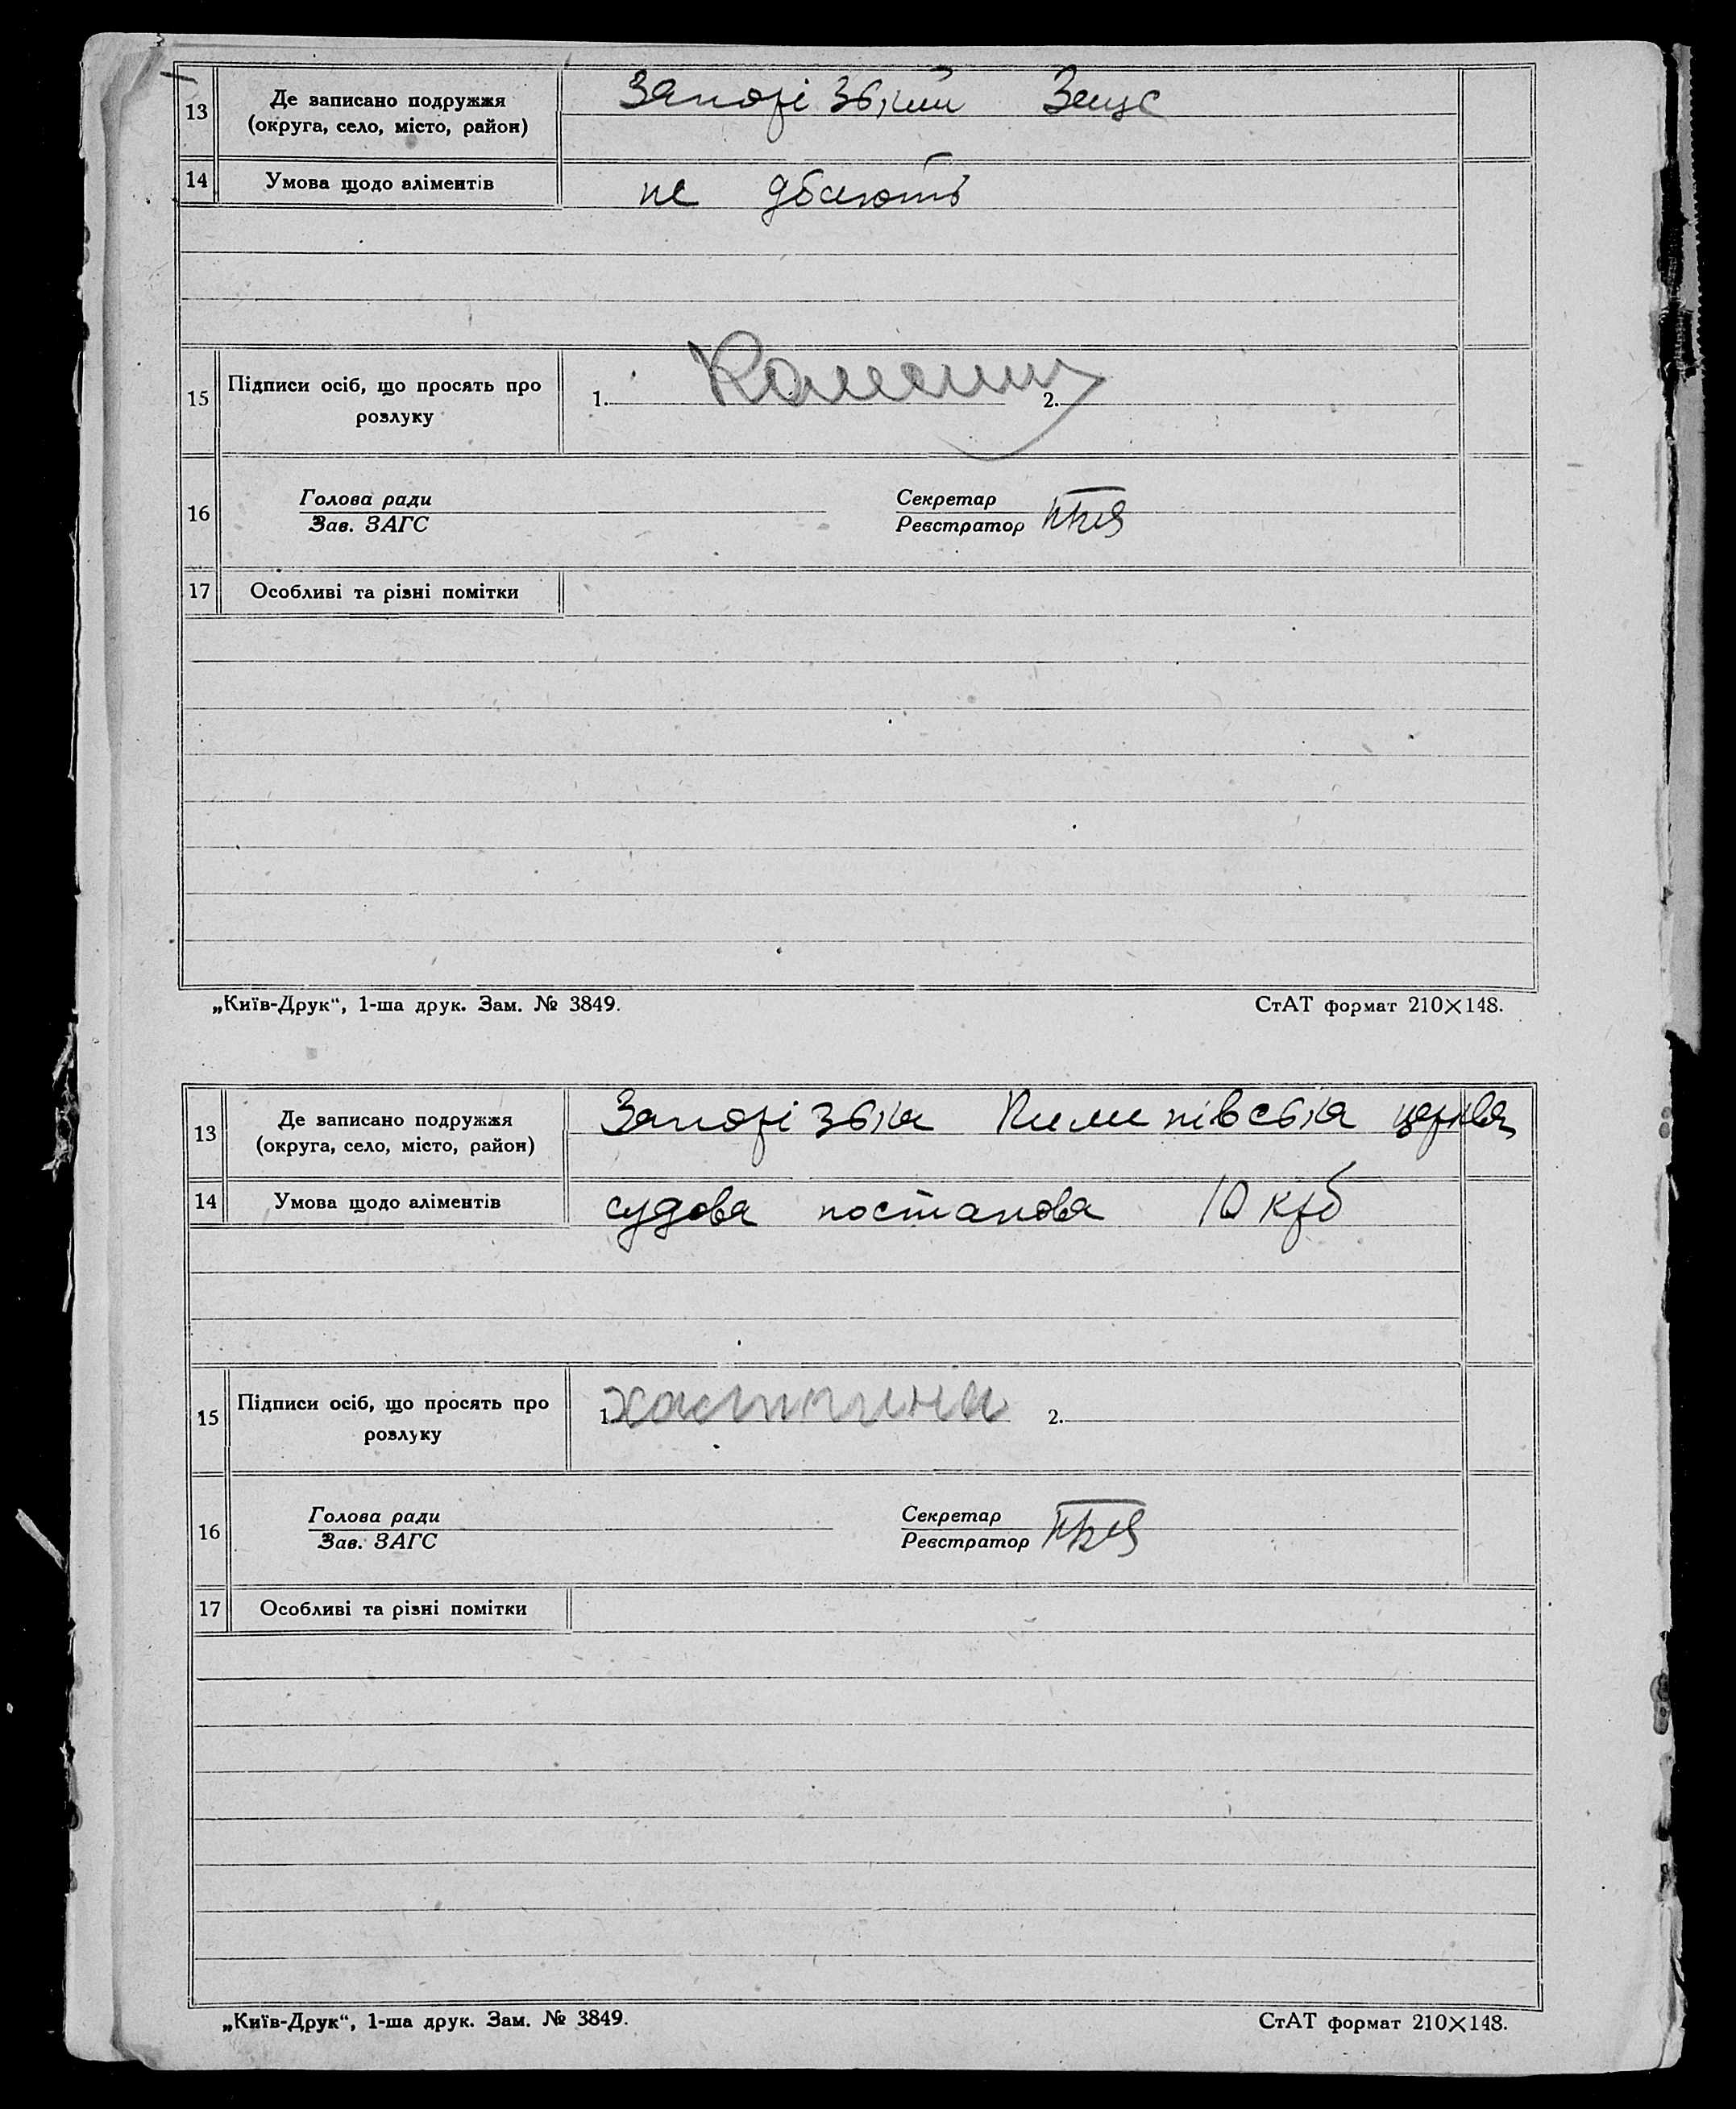 13 Де записано подружжя
(округа, село, місто, район) Запорізький Загс
14 Умова щодо аліментів не дбають
15 Підписи осіб, що просять про
розлуку 1. 2.
16 Голова ради Секретар
Зав. ЗАГС Реєстратор
17 Особливі та різні помітки
„Київ-Друк“, 1-ша друк. Зам. № 3849. СтАТ формат 210×148.
13 Де записано подружжя
(округа, село, місто, район) Запорізька церква
14 Умова щодо аліментів судова постанова 10 крб
15 Підписи осіб, що просять про
розлуку 1. 2.
16 Голова ради Секретар
Зав. ЗАГС Реєстратор
17 Особливі та різні помітки
„Київ-Друк“, 1-ша друк. Зам. № 3849. СтАТ формат 210×148.